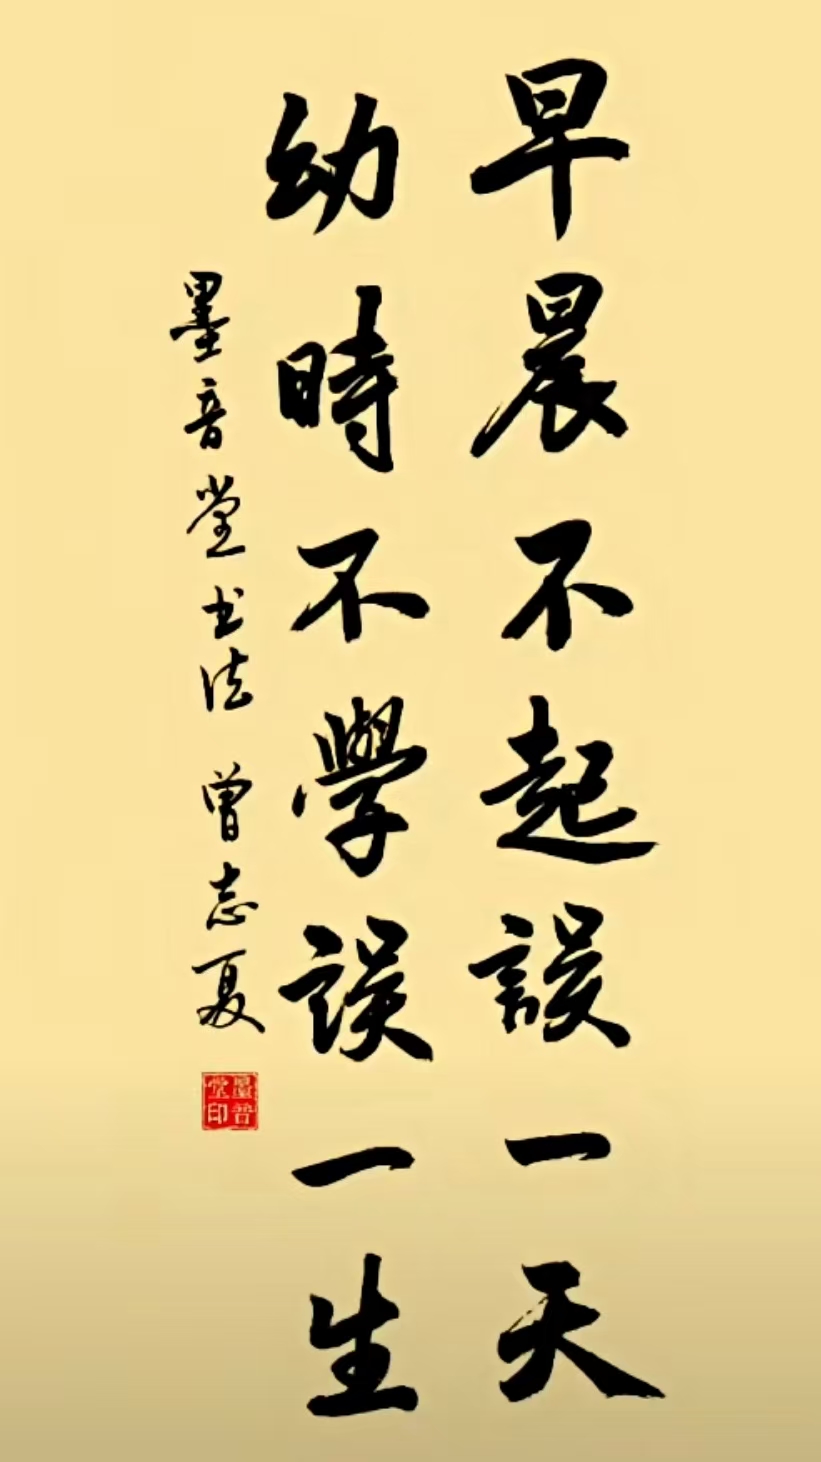 早晨不起誤一天
幼時不學誤一生
墨音堂书法 曾志夏
墨音堂印